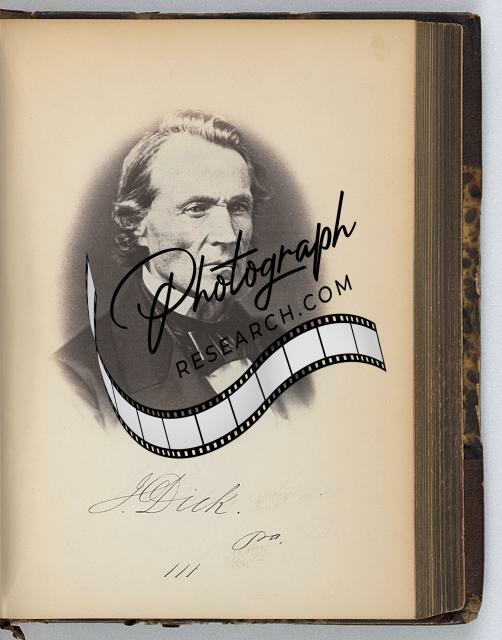 Photograph
RESEARCH.COM
J. Dick.
Pa.
111